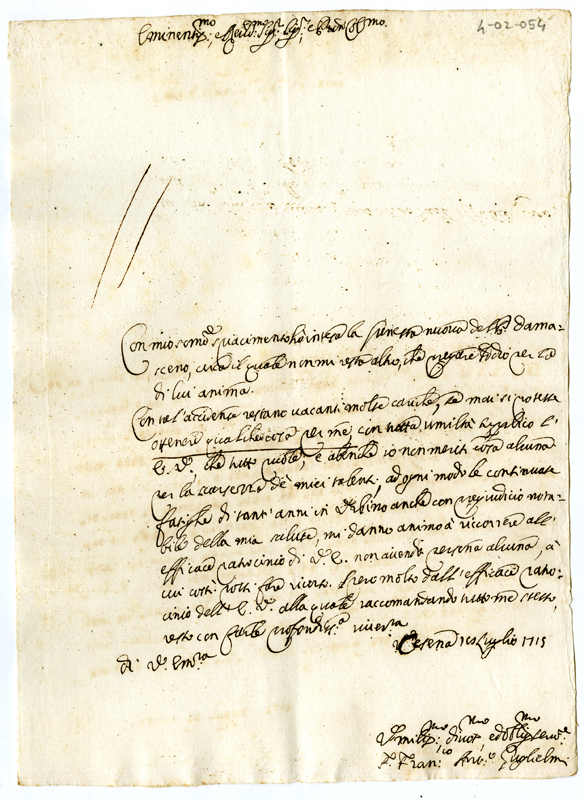 4-02-054
Eminent.mo e Rev.mo Sig.r Sig.r e Pron Col.mo
Con mio sommo spiacimento hò inteso la funesta nuova del P. Dama-
sceno, circa il quale non mi resta altro, che pregare Iddio per la
di lui anima.
Con tal' accidente restano vacanti molte cariche, se mai si potesse
ottenere qualche cosa per me, con tutta umiltà supplico l'
E. V. che tutto puole, e benche io non meriti cosa alcuna
per la scarsezza de miei talenti, ad ogni modo le continuate
fatighe di tant' anni in Urbino anche con pregiudicio nota-
bile della mia salute, mi danno animo à ricorrere all'
efficace patrocinio di V. E. non avendo persona alcuna, à
cui possi fare ricorso. Spero molto dall' efficace patro-
cinio dell' E. V. alla quale raccomandando tutto me stesso,
resto con farle profondis.a riverza
di V. Em.za
Cesena Luglio 1715
Umilis.mo divot.mo ed obblig.mo serv.e
F. Fran.co Ant.o Guglielmi